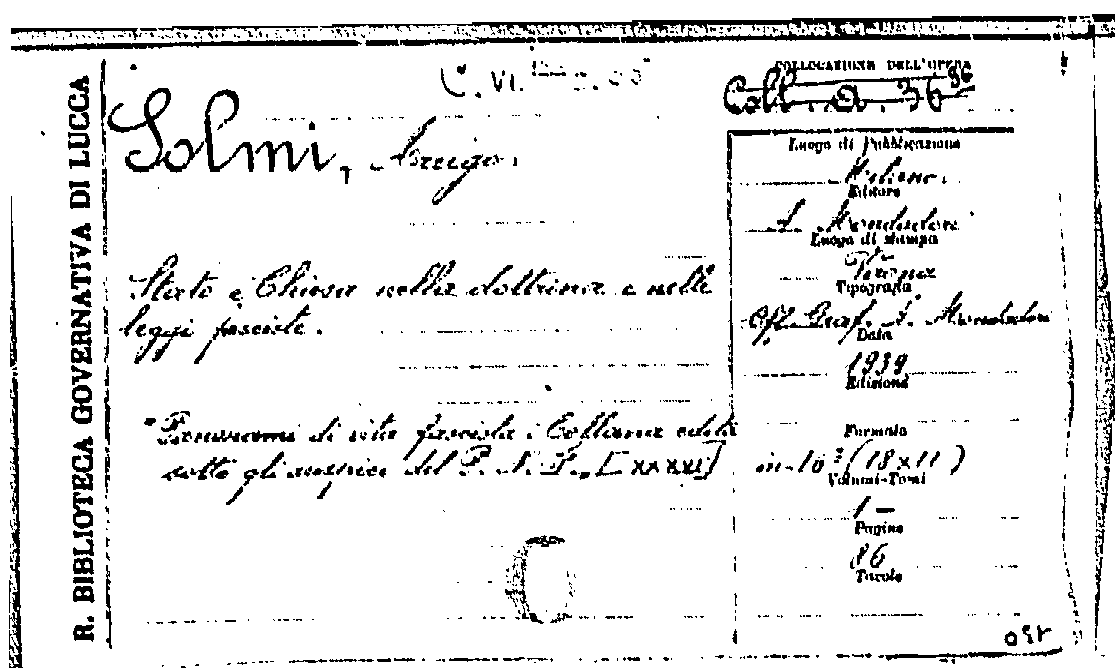 R. BIBLIOTECA GOVERNATIVA DI LUCCA
C. VI.
COLLOCAZIONE DELL'OPERA
Coll. A. 36 86
Solmi, Arrigo.
Stato e Chiesa nella dottrina e nelle
leggi fasciste.
"Panorami di vita fascista: Collana edita
sotto gli auspici del P. N. F., [XXXXI]
C
Luogo di Pubblicazione
Milano.
Editore
A. Mondadori
Luogo di stampa
Verona
Tipografia
Off. Graf. A. Mondadori
Data
1939
Edizione
Formato
in-16º (18x11)
Volumi-Tomi
1 -
Pagine
86
Tavole